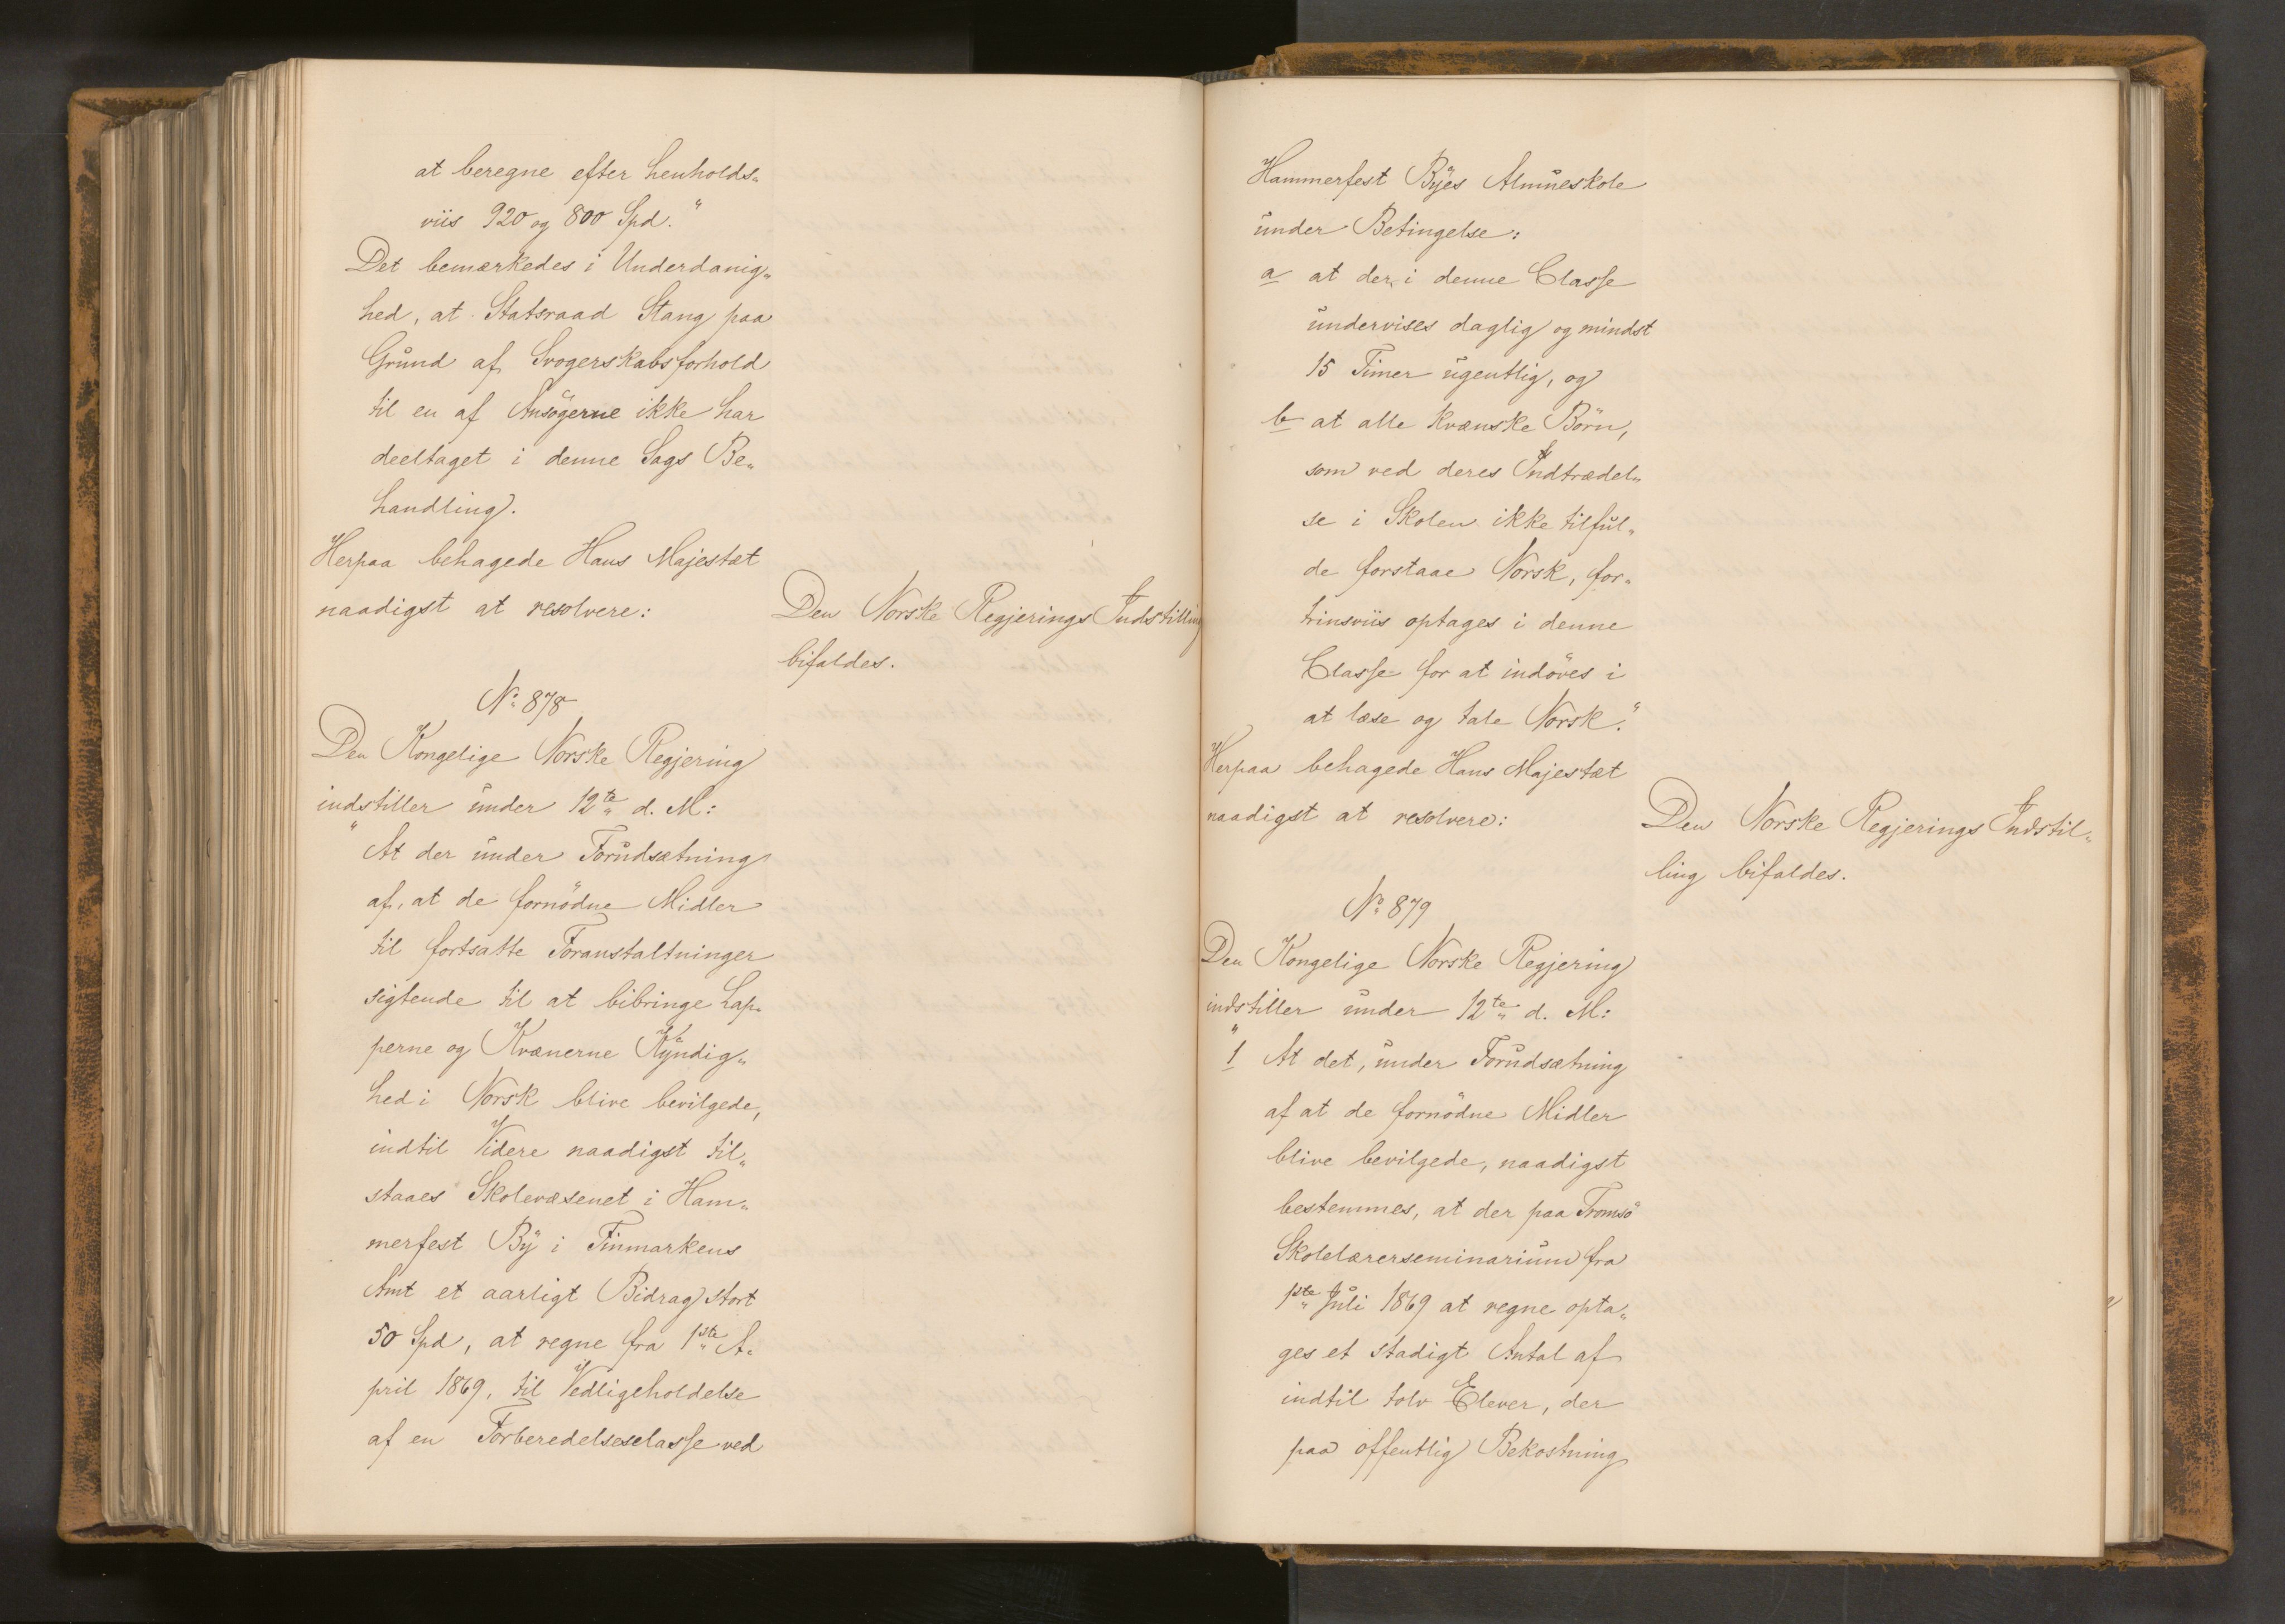 at beregne efter henholds„
viis 920 og 800 Spd.“
Det bemærkedes i Underdanig„
hed, at Statsraad Stang paa
Grund af Svogerskabsforhold
til en af Ansøgerne ikke har
deeltaget i denne Sags Be„
handling.
Herpaa behagede Hans Majestæt
naadigst at resolvere:
Den Norske Regjerings Indstilling
bifaldes.
No 878
Den Kongelige Norske Regjering
indstiller under 12te d. M:
"At der under Forudsætning
af, at de fornödne Midler
til fortsatte Foranstaltninger
sigtende til at bibringe Lap„
perne og Kvænerne Kyndig„
hed i Norsk blive bevilgede,
indtil Videre naadigst til„
staaes Skolevæsenet i Ham„
merfest By i Finmarkens
Amt et aarligt Bidrag stort
50 Spd, at regne fra 1ste A„
pril 1869, til Vedligeholdelse
af en Forberedelsesclasse ved
Hammerfest Byes Almueskole
under Betingelse:
a at der i denne Classe
undervises daglig og mindst
15 Timer ugentlig, og
b at alle kvænske Börn,
som ved deres Indtrædel„
se i Skolen ikke tilful„
de forstaae Norsk, for„
trinsviis optages i denne
Classe for at indöves i
at læse og tale Norsk.“
Herpaa behagede Hans Majestæt
naadigst at resolvere:
Den Norske Regjerings Indstil„
ling bifaldes.
No 879
Den Kongelige Norske Regjering
indstiller under 12te d. M:
"1 At det, under Forudsætning
af at de fornödne Midler
blive bevilgede, naadigst
bestemmes, at der paa Tromsö
Skolelærerseminarium fra
1ste Juli 1869 at regne opta„
ges et stadigt Antal af
indtil tolv Elever, der
paa offentlig Bekostning